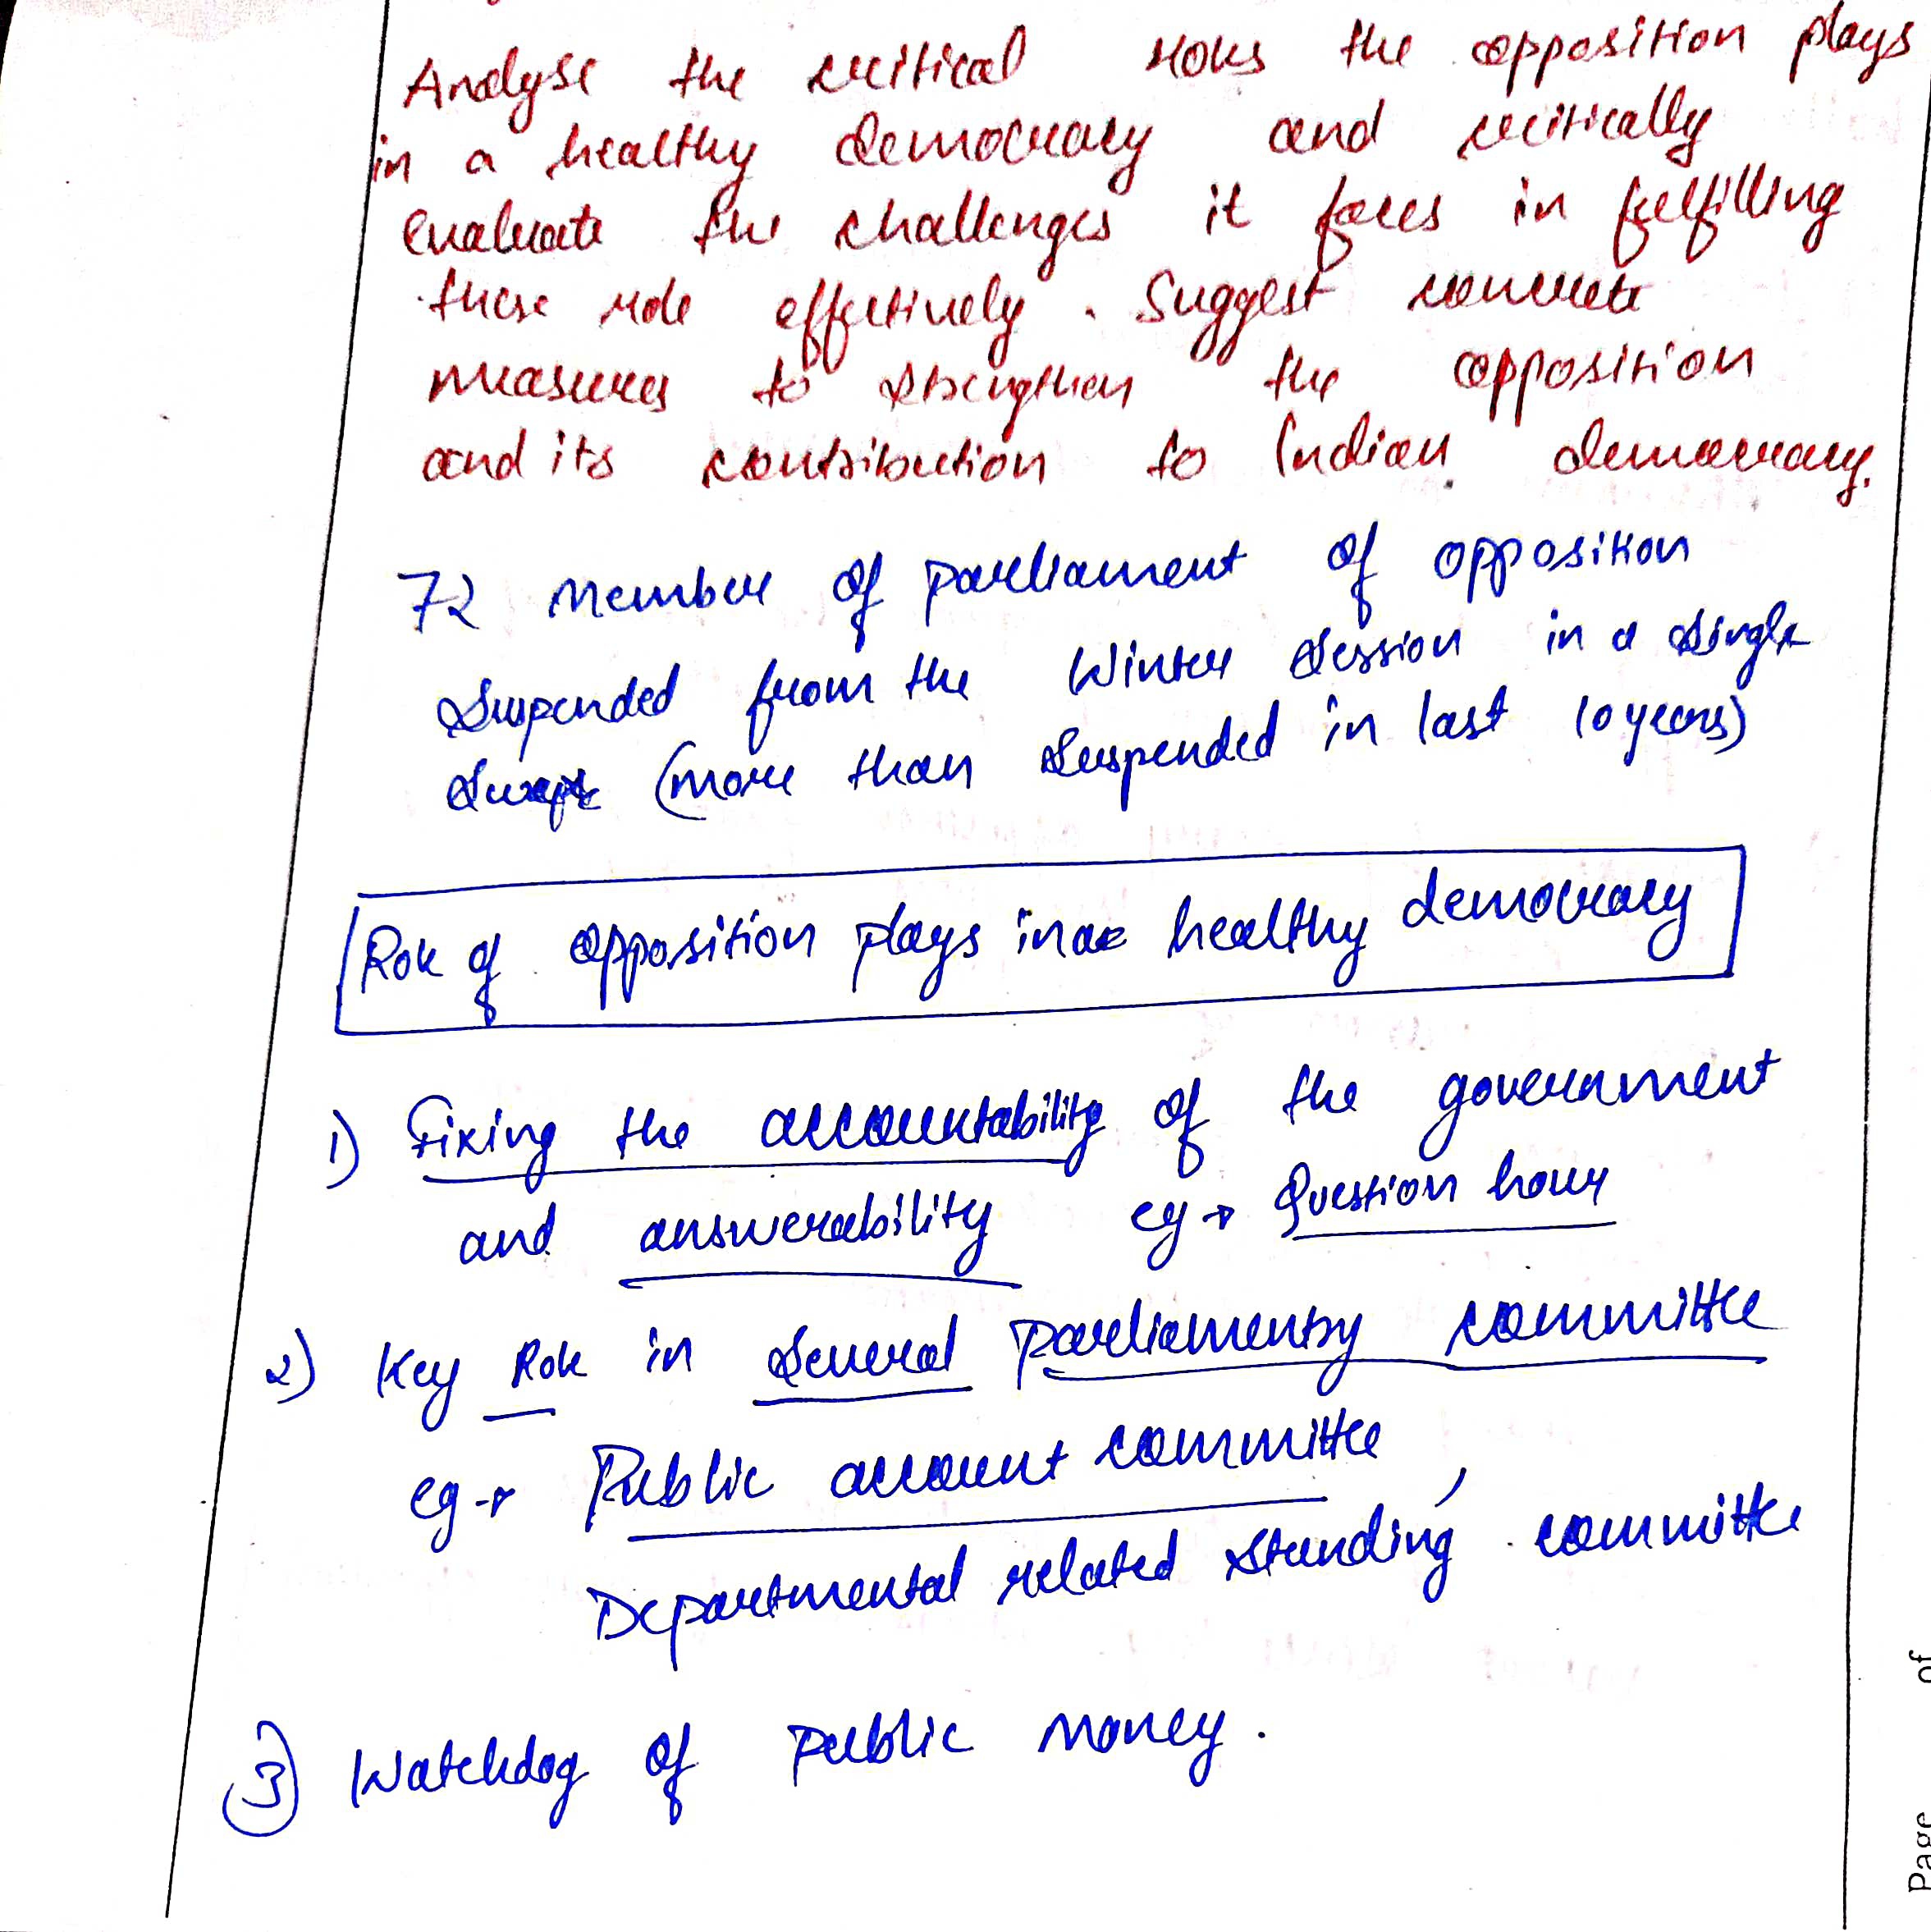 Analyse the critical roles the opposition plays
in a healthy democracy and critically
evaluate the challenges it faces in fulfilling
these role effectively. Suggest concrete
measures to strengthen the opposition
and its contribution to Indian democracy.
72 Member of parliament of opposition
Suspended from the Winter Session in a single
(more than suspended in last 10 years)
Role of opposition plays in a healthy democracy
1) Fixing the accountability of the government
and answerability eg → Question hour
2) Key Role in several Parliamentry committee
eg → Public account committee,
Departmental related standing committee
3) Watchdog of public money.
Page of